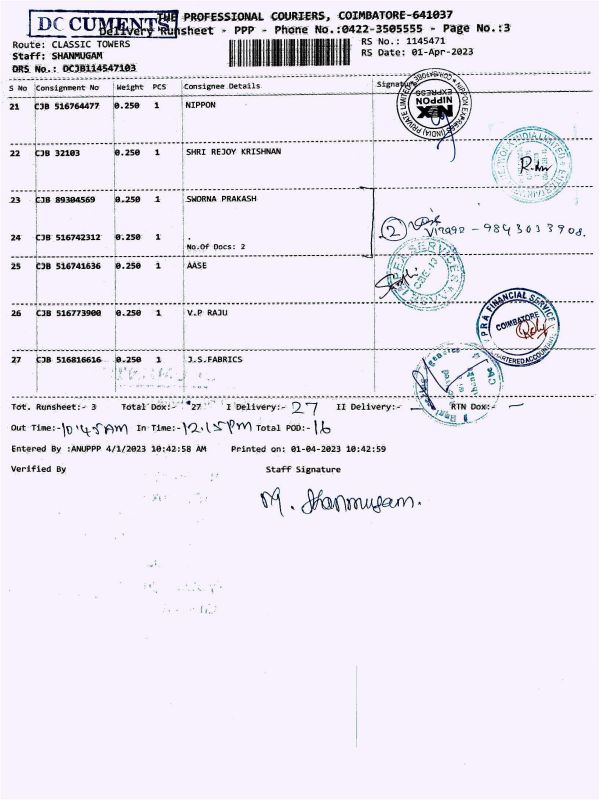 DOCUMENTS
THE PROFESSIONAL COURIERS, COIMBATORE-641037
Delivery Runsheet - PPP - Phone No.:0422-3505555 - Page No.:3
Route: CLASSIC TOWERS RS No.: 1145471
Staff: SHANMUGAM RS Date: 01-Apr-2023
DRS No.: DCJB114547103
S No Consignment No Weight PCS Consignee Details Signature
21 CJB 516764477 0.250 1 NIPPON
NIPPON EXPRESS (INDIA) PRIVATE LIMITED COIMBATORE
NX
NIPPON EXPRESS
22 CJB 32103 0.250 1 SHRI REJOY KRISHNAN
23 CJB 89304569 0.250 1 SWORNA PRAKASH
2 - 9843033908.
24 CJB 516742312 0.250 1 .
No.Of Docs: 2
25 CJB 516741636 0.250 1 AASE
CBE-12
26 CJB 516773900 0.250 1 V.P RAJU
PRA FINANCIAL SERVICE
COIMBATORE
27 CJB 516816616 0.250 1 J.S.FABRICS
Tot. Runsheet:- 3 Total Dox:- 27 I Delivery:- 27 II Delivery:- - RTN Dox:- -
Out Time:- 10.45AM In Time:- 12.15PM Total POD:- 16
Entered By :ANUPPP 4/1/2023 10:42:58 AM Printed on: 01-04-2023 10:42:59
Verified By Staff Signature
M. Shanmugam.